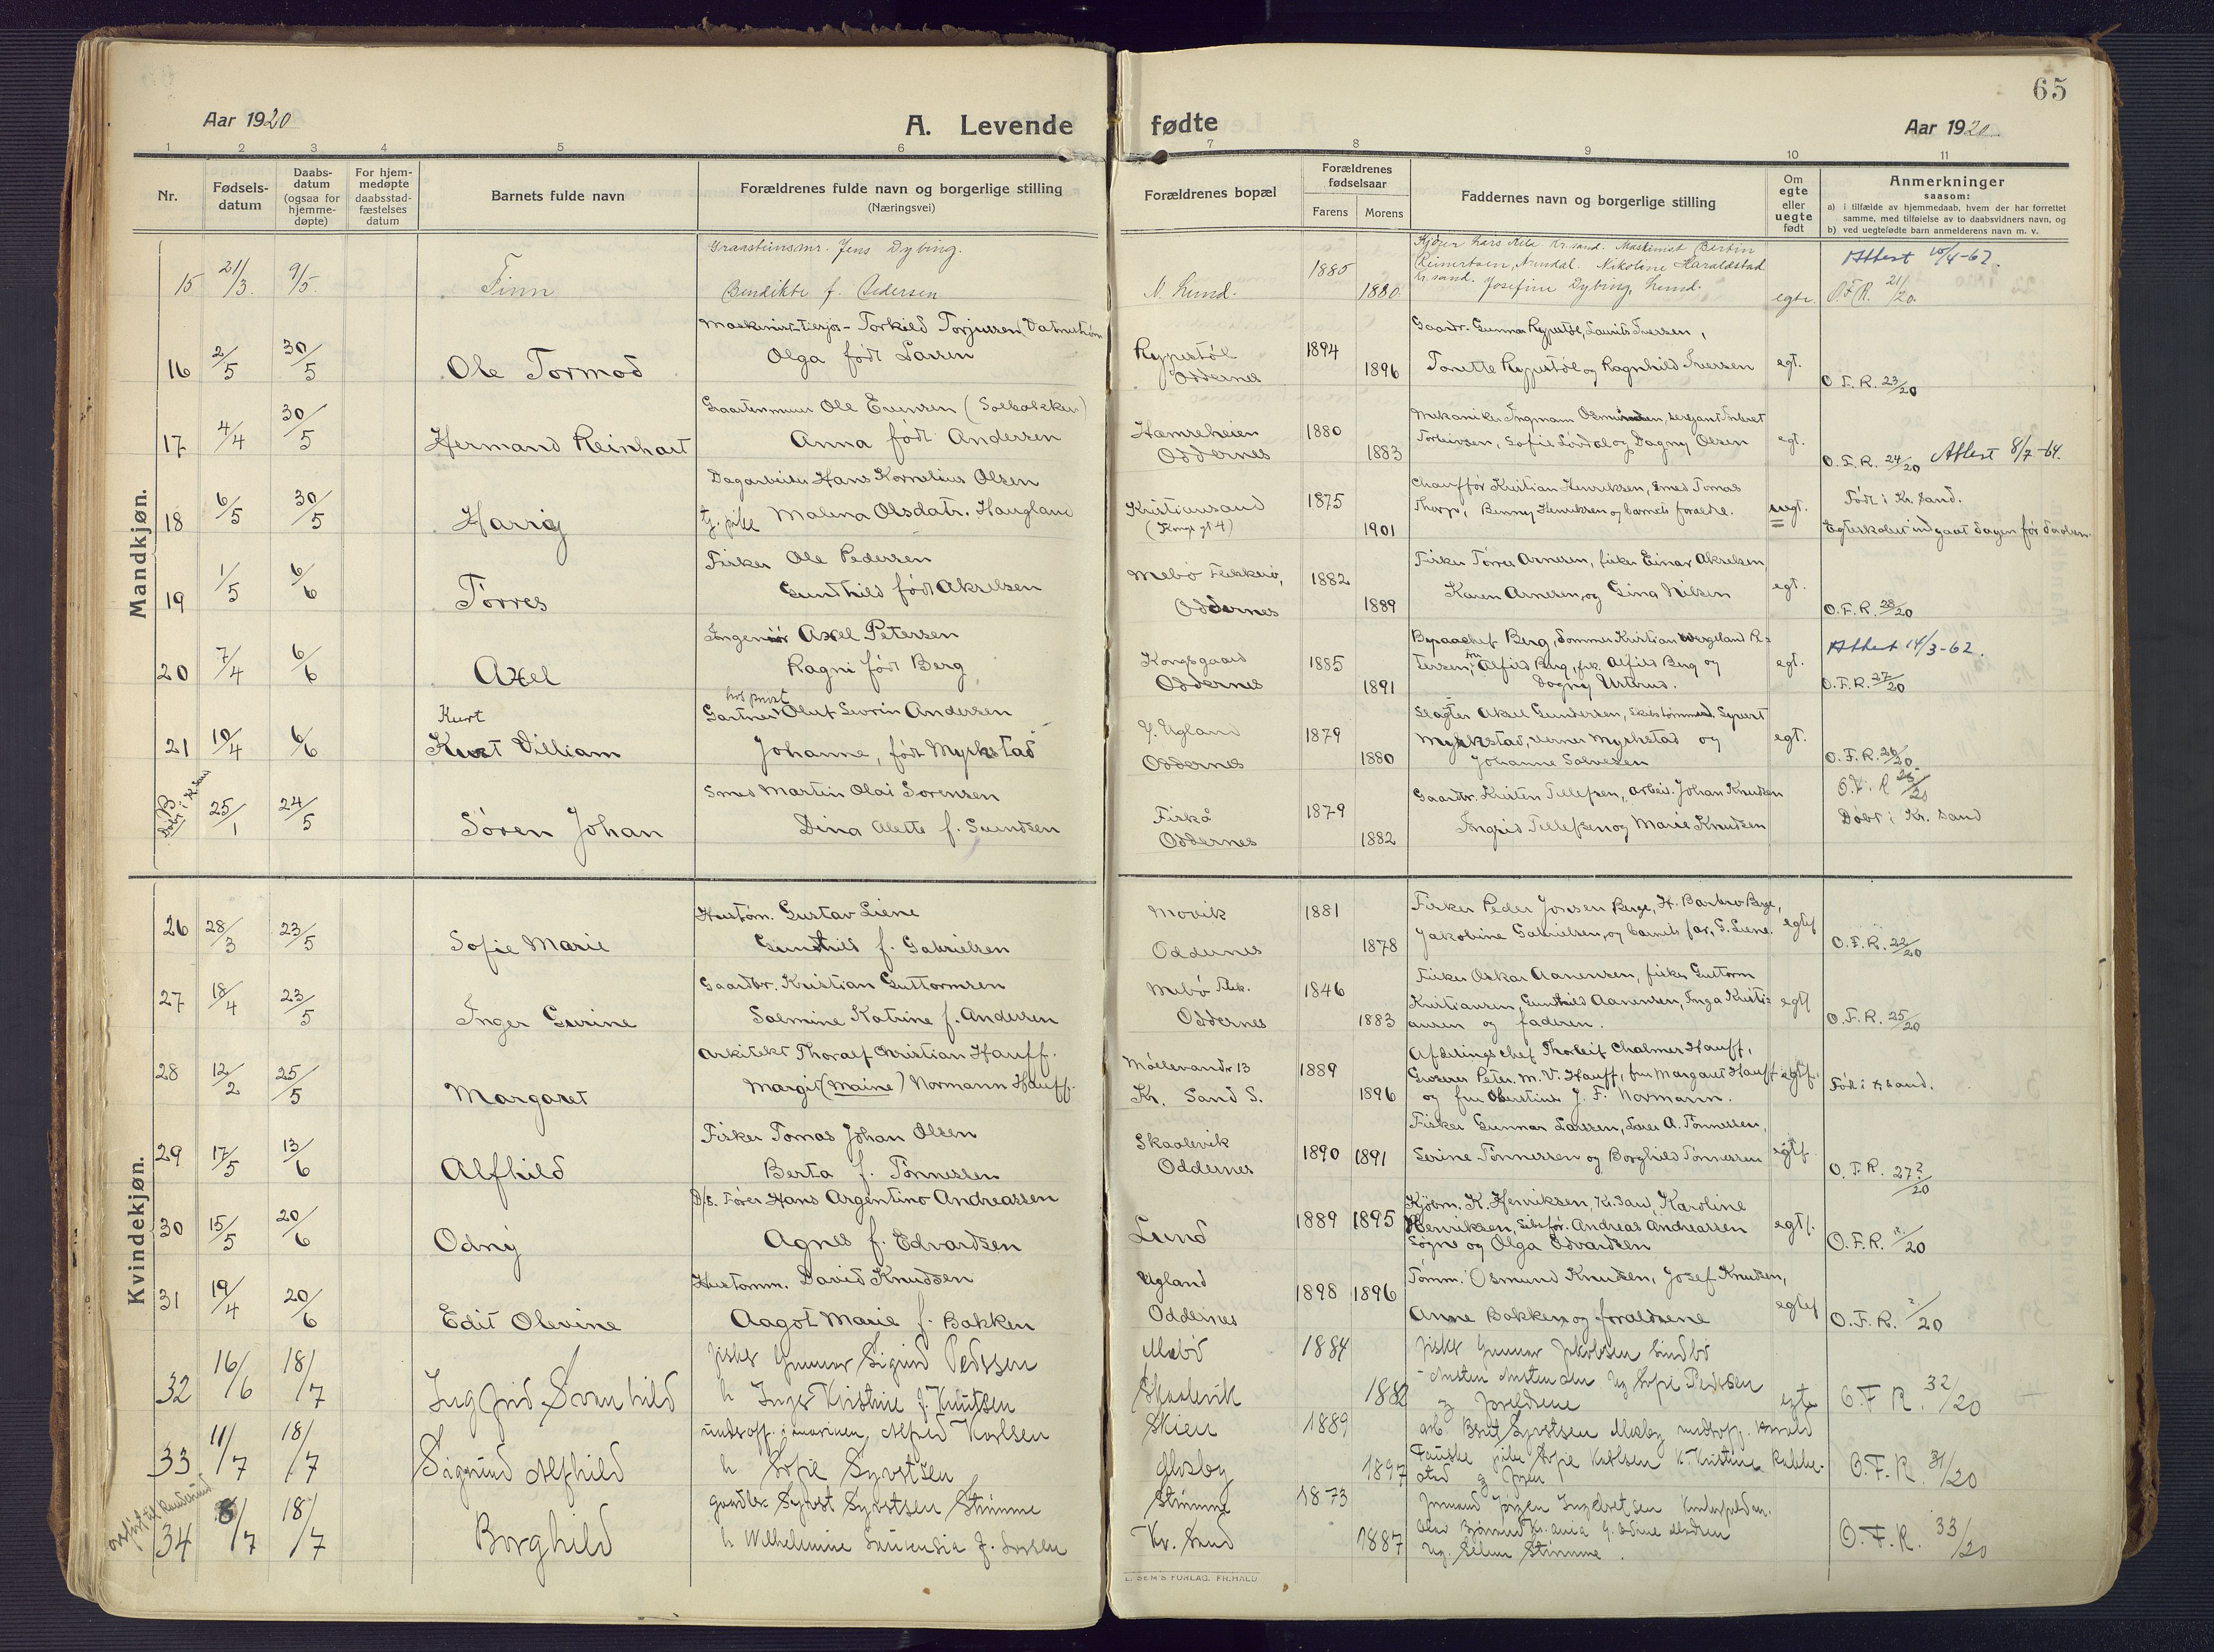 65
Aar 1920
A. Levende
fødte
Aar 1920
1 2 3 4 5 6 7 8 9 10 11
Nr.
Fødsels-
datum
Daabs-
datum
(ogsaa for
hjemme-
døpte)
For hjem-
medøpte
daabsstad-
fæstelses
datum
Barnets fulde navn
Forældrenes fulde navn og borgerlige stilling
(Næringsvei)
Forældrenes bopæl
Forældrenes
fødselsaar
Farens Morens
Faddernes navn og borgerlige stilling
Om
egte
eller
uegte
født
Anmerkninger
saasom:
a) i tilfælde av hjemmedaab, hvem der har forrettet
samme, med tilføielse av to daabsvidners navn, og
b) ved uegtefødte barn anmelderens navn m. v.
Mandkjøn.
15 21/3. 9/5. Finn
Jens Dybing.
Bendikte f. Pedersen
N. Lund. 1885 1880
Reinertsen, Arendal. Nikoline Haraldstad
Kr. sand. Josefine Dybing, Lund.
egte. Attest 10/4-62.
O.F.R. 21/20.
16 2/5 30/5 Ole Tormod
Torkild Torjussen
Olga født Larsen
Oddernes 1894 1896
Gaardbr. Gunnar Rypestøl, Laurits Iversen,
Tonette Rypestøl og Ragnhild Iversen
egt. O.F.R. 23/20
17 4/4 30/5 Hermand Reinhart
Ole Evensen (Solbakken)
Anna født Andersen
Hamreheien
Oddernes 1880 1883
Sofie Lordal og Dagny Olsen
egt. O.F.R. 24/20 Attest 8/7-64.
18 6/5 30/5 Harry
Dagarbeider Hans Kornelius Olsen
tj. pike Malena Olsdatr. Haugland
Kristiansand
1875 1901
Chauffør Kristian Henriksen, Smed Tomas
Thorp, Benny Henriksen og barnets forældre.
uegt. Født i Kr. sand.
Egteskabet indgaat dagen før daaben.
19 1/5 6/6 Tørres
Fisker Ole Pedersen
Gundhild født Akselsen
Mebø Flekkerø,
Oddernes 1882 1889
Fisker Tørres Arnesen, fisker Einar Akselsen,
Karen Arnesen, og Gina Nilsen
egt. O.F.R. 28/20
20 7/4 6/6 Axel
Ingeniør Axel Petersen
Ragni født Berg
Kongsgaard
Oddernes 1885 1891
Byraachef Berg, Kristian Wergeland Pe-
tersen, fru Alfild Berg, frk. Alfild Berg og
Dagny Ustrud.
egt. Attest 14/3-62.
O.F.R. 27/20
21 10/4 6/6 Kurt
Kurt Villiam
hos provst
Gartner Oluf Sevrin Andersen
Johanne, født Myrkstad
Ugland
Oddernes 1879 1880
Slagter Aksel Gundersen, Skibstømmerm. Syvert
Myrkstad, Verner Myrkstad og
Johanne Salvesen
egt. O.F.R. 26/20.
B
25/1 24/5 Sören Johan
Smed Martin Olai Sorensen
Dina Alette f. Svendsen
Fiskå
Oddernes 1879 1882
Gaardbr. Kristen Tellefsen, arbeid. Johan Knudsen
Ingrid Tellefsen og Marie Knudsen
Døbt i Kr. sand
Kvindekjøn.
26 28/3 23/5 Sofie Marie
Hustøm. Gustav Liene
Gundhild f. Gabrielsen
Movik
Oddernes 1881 1878
Fisker Peder Jonsen Berge, H. Barbro Berge,
Jakobine Gabrielsen, og barnets far, G. Liene.
egtef O.F.R. 22/20
27 18/4 23/5 Inger Gurine
Gaardbr. Kristian Guttormsen
Salmine Katrine f. Andersen
Mebø Flek.
Oddernes 1846 1883
Fisker Oskar Aanensen, fisker Guttorm
Kristiansen, Gundhild Aanensen, Inga Kristi-
ansen og faderen.
egtf O.F.R. 25/20
28 12/2 25/5 Margaret
Arkitekt Thoralf Christian Hauff.
Margit (Maine) Normann Hauff.
Møllevandr 13
Kr. Sand S. 1889 1896
Afdelingschef Thorleif Chalmer Hauff,
Grosserer Peter M. V. Hauff, fru Margaret Hauff
og fru Oberstinde J. F. Normann.
egtf. Fød i Kr sand.
29 17/5 13/6 Alfhild
Fisker Tomas Johan Olsen
Berta f. Tønnessen
Skaalevik
Oddernes 1890 1891
Fisker Gunnar Larsen, Lars A. Tønnessen,
Serine Tønnessen og Borghild Tønnessen
egtf. O.F.R. 27?/20
30 15/5 20/6 Odny
D/S. Fører Hans Argentino Andreassen
Agnes f. Edvardsen
Lund 1889 1895
Kjøbm. K. Henriksen, Kr.Sand, Karoline
Henriksen, Andreas Andreassen
Søgne og Olga Edvardsen
egtf. O.F.R. /20
31 19/4 20/6 Edit Olevine
Hustømm. David Knudsen
Aagot Marie f. Bakken
Ugland
Oddernes 1898 1896
Tømm. Osmund Knudsen, Josef Knudsen,
Anne Bakken og forældrene
egtef O.F.R. /20
32 16/6 18/7 Ingfrid Svanhild
fisker Gunnar Sigurd Pedersen
h Inger Kristine f. Knutsen
Mebø
Skaalevik 1884 1882
fisker Gunnar Jakobsen Lindbø
og Sofie Pedersen
og forældrene
egte O.F.R. 32/20
33 11/7 18/7 Sigrund Alfhild
underoff. i marinen, Alfred Karlsen
h Sofie Syvertsen
Skien
Mosby 1889 1897
arb. Bent Syvertsen Mosby
pike Sofie Karlsen
O.F.R. 31/20
34 8/7 18/7 Borghild
gaardbr Syvert Syvertsen Strømme
h Wilhelmine f. Larsen
Strømme
Kr. Sand 1873 1887
Strømme.
O.F.R. 33/20
L. SEM'S FORLAG. FR.HALD